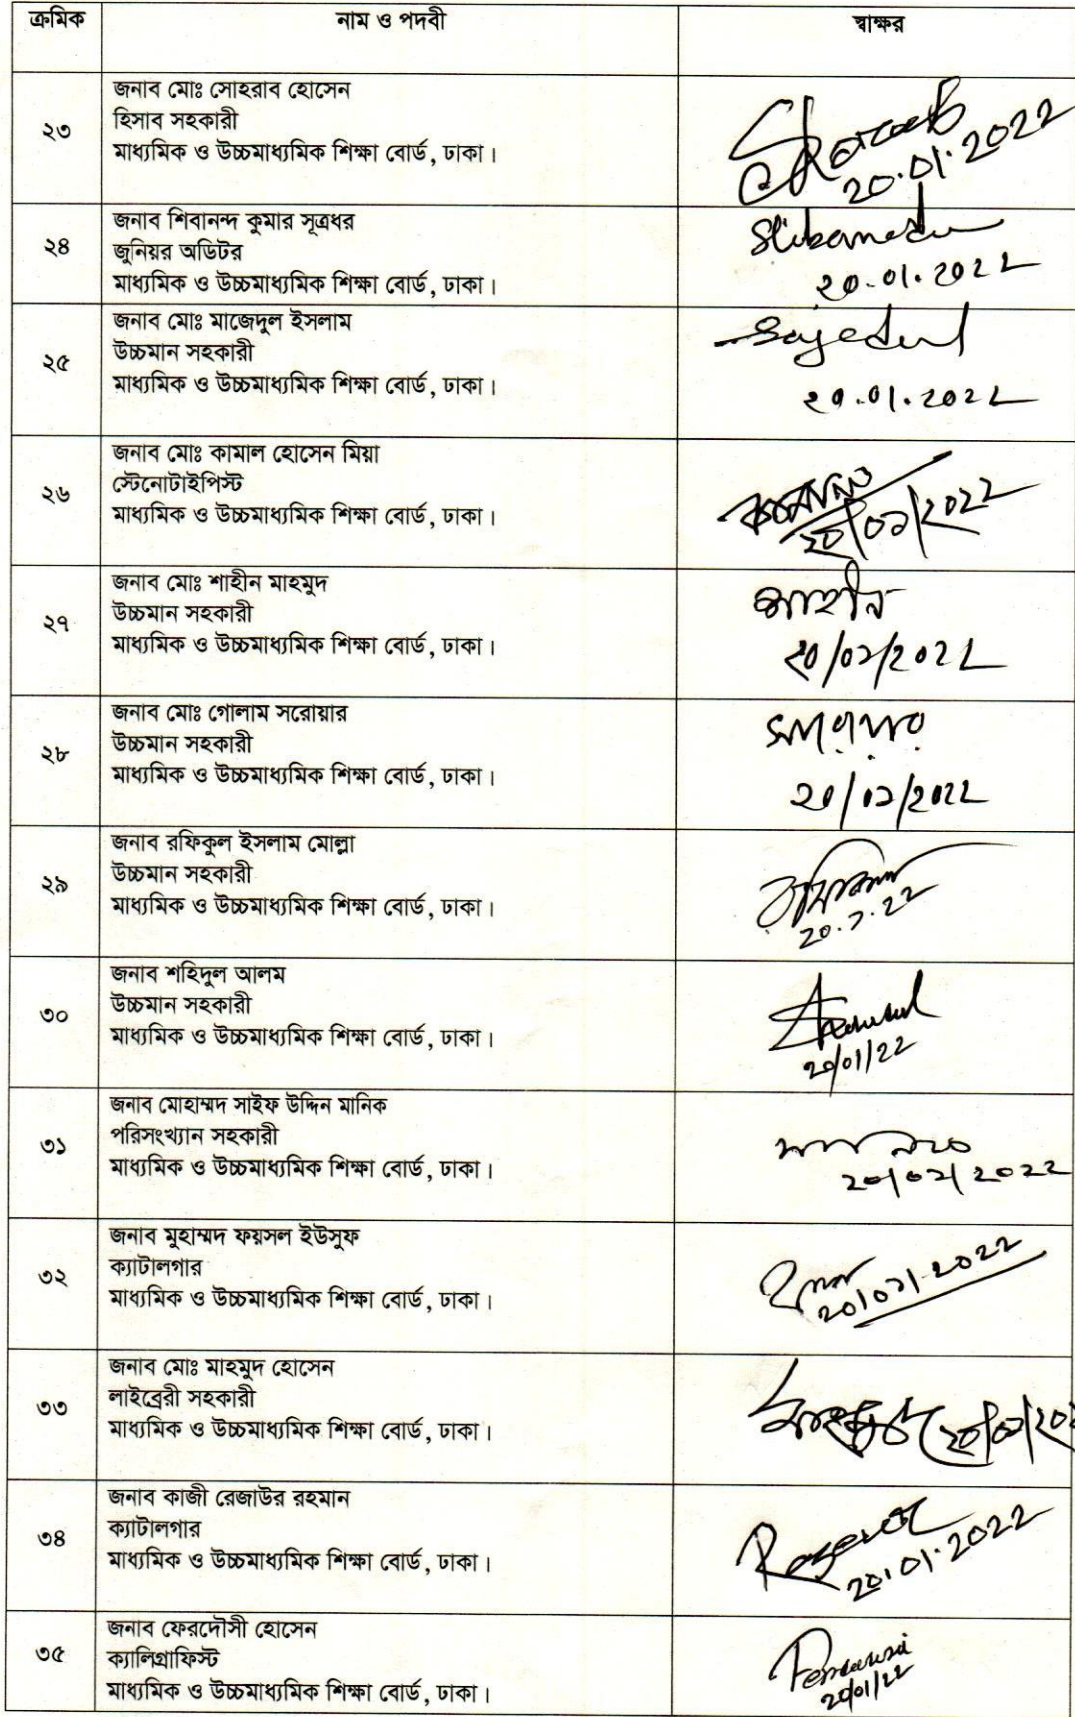 ক্রমিক নাম ও পদবী স্বাক্ষর
জনাব মোঃ সোহরাব হোসেন
২৩ হিসাব সহকারী
মাধ্যমিক ও উচ্চমাধ্যমিক শিক্ষা বোর্ড, ঢাকা।
20.01.2022
জনাব শিবানন্দ কুমার সূত্রধর
২৪ জুনিয়র অডিটর
মাধ্যমিক ও উচ্চমাধ্যমিক শিক্ষা বোর্ড, ঢাকা।
২০.01.2022
জনাব মোঃ মাজেদুল ইসলাম
২৫ উচ্চমান সহকারী
মাধ্যমিক ও উচ্চমাধ্যমিক শিক্ষা বোর্ড, ঢাকা।
Sajedul
২০.01.2022
জনাব মোঃ কামাল হোসেন মিয়া
২৬ স্টেনোটাইপিস্ট
মাধ্যমিক ও উচ্চমাধ্যমিক শিক্ষা বোর্ড, ঢাকা।
২০/০১/২০২২
জনাব মোঃ শাহীন মাহমুদ
২৭ উচ্চমান সহকারী
মাধ্যমিক ও উচ্চমাধ্যমিক শিক্ষা বোর্ড, ঢাকা।
শাহীন
২০/০১/২০২২
জনাব মোঃ গোলাম সরোয়ার
২৮ উচ্চমান সহকারী
মাধ্যমিক ও উচ্চমাধ্যমিক শিক্ষা বোর্ড, ঢাকা।
২০/০১/২০২২
জনাব রফিকুল ইসলাম মোল্লা
২৯ উচ্চমান সহকারী
মাধ্যমিক ও উচ্চমাধ্যমিক শিক্ষা বোর্ড, ঢাকা।
২০.১.২২
জনাব শহিদুল আলম
৩০ উচ্চমান সহকারী
মাধ্যমিক ও উচ্চমাধ্যমিক শিক্ষা বোর্ড, ঢাকা।
20/01/22
জনাব মোহাম্মদ সাইফ উদ্দিন মানিক
৩১ পরিসংখ্যান সহকারী
মাধ্যমিক ও উচ্চমাধ্যমিক শিক্ষা বোর্ড, ঢাকা।
মানিক
২০/০১/২০২২
জনাব মুহাম্মদ ফয়সল ইউসুফ
৩২ ক্যাটালগার
মাধ্যমিক ও উচ্চমাধ্যমিক শিক্ষা বোর্ড, ঢাকা।
২০/০১/২০২২
জনাব মোঃ মাহমুদ হোসেন
৩৩ লাইব্রেরী সহকারী
মাধ্যমিক ও উচ্চমাধ্যমিক শিক্ষা বোর্ড, ঢাকা।
জনাব কাজী রেজাউর রহমান
৩৪ ক্যাটালগার
মাধ্যমিক ও উচ্চমাধ্যমিক শিক্ষা বোর্ড, ঢাকা।
20.01.2022
জনাব ফেরদৌসী হোসেন
৩৫ ক্যালিগ্রাফিস্ট
মাধ্যমিক ও উচ্চমাধ্যমিক শিক্ষা বোর্ড, ঢাকা।
20/01/22